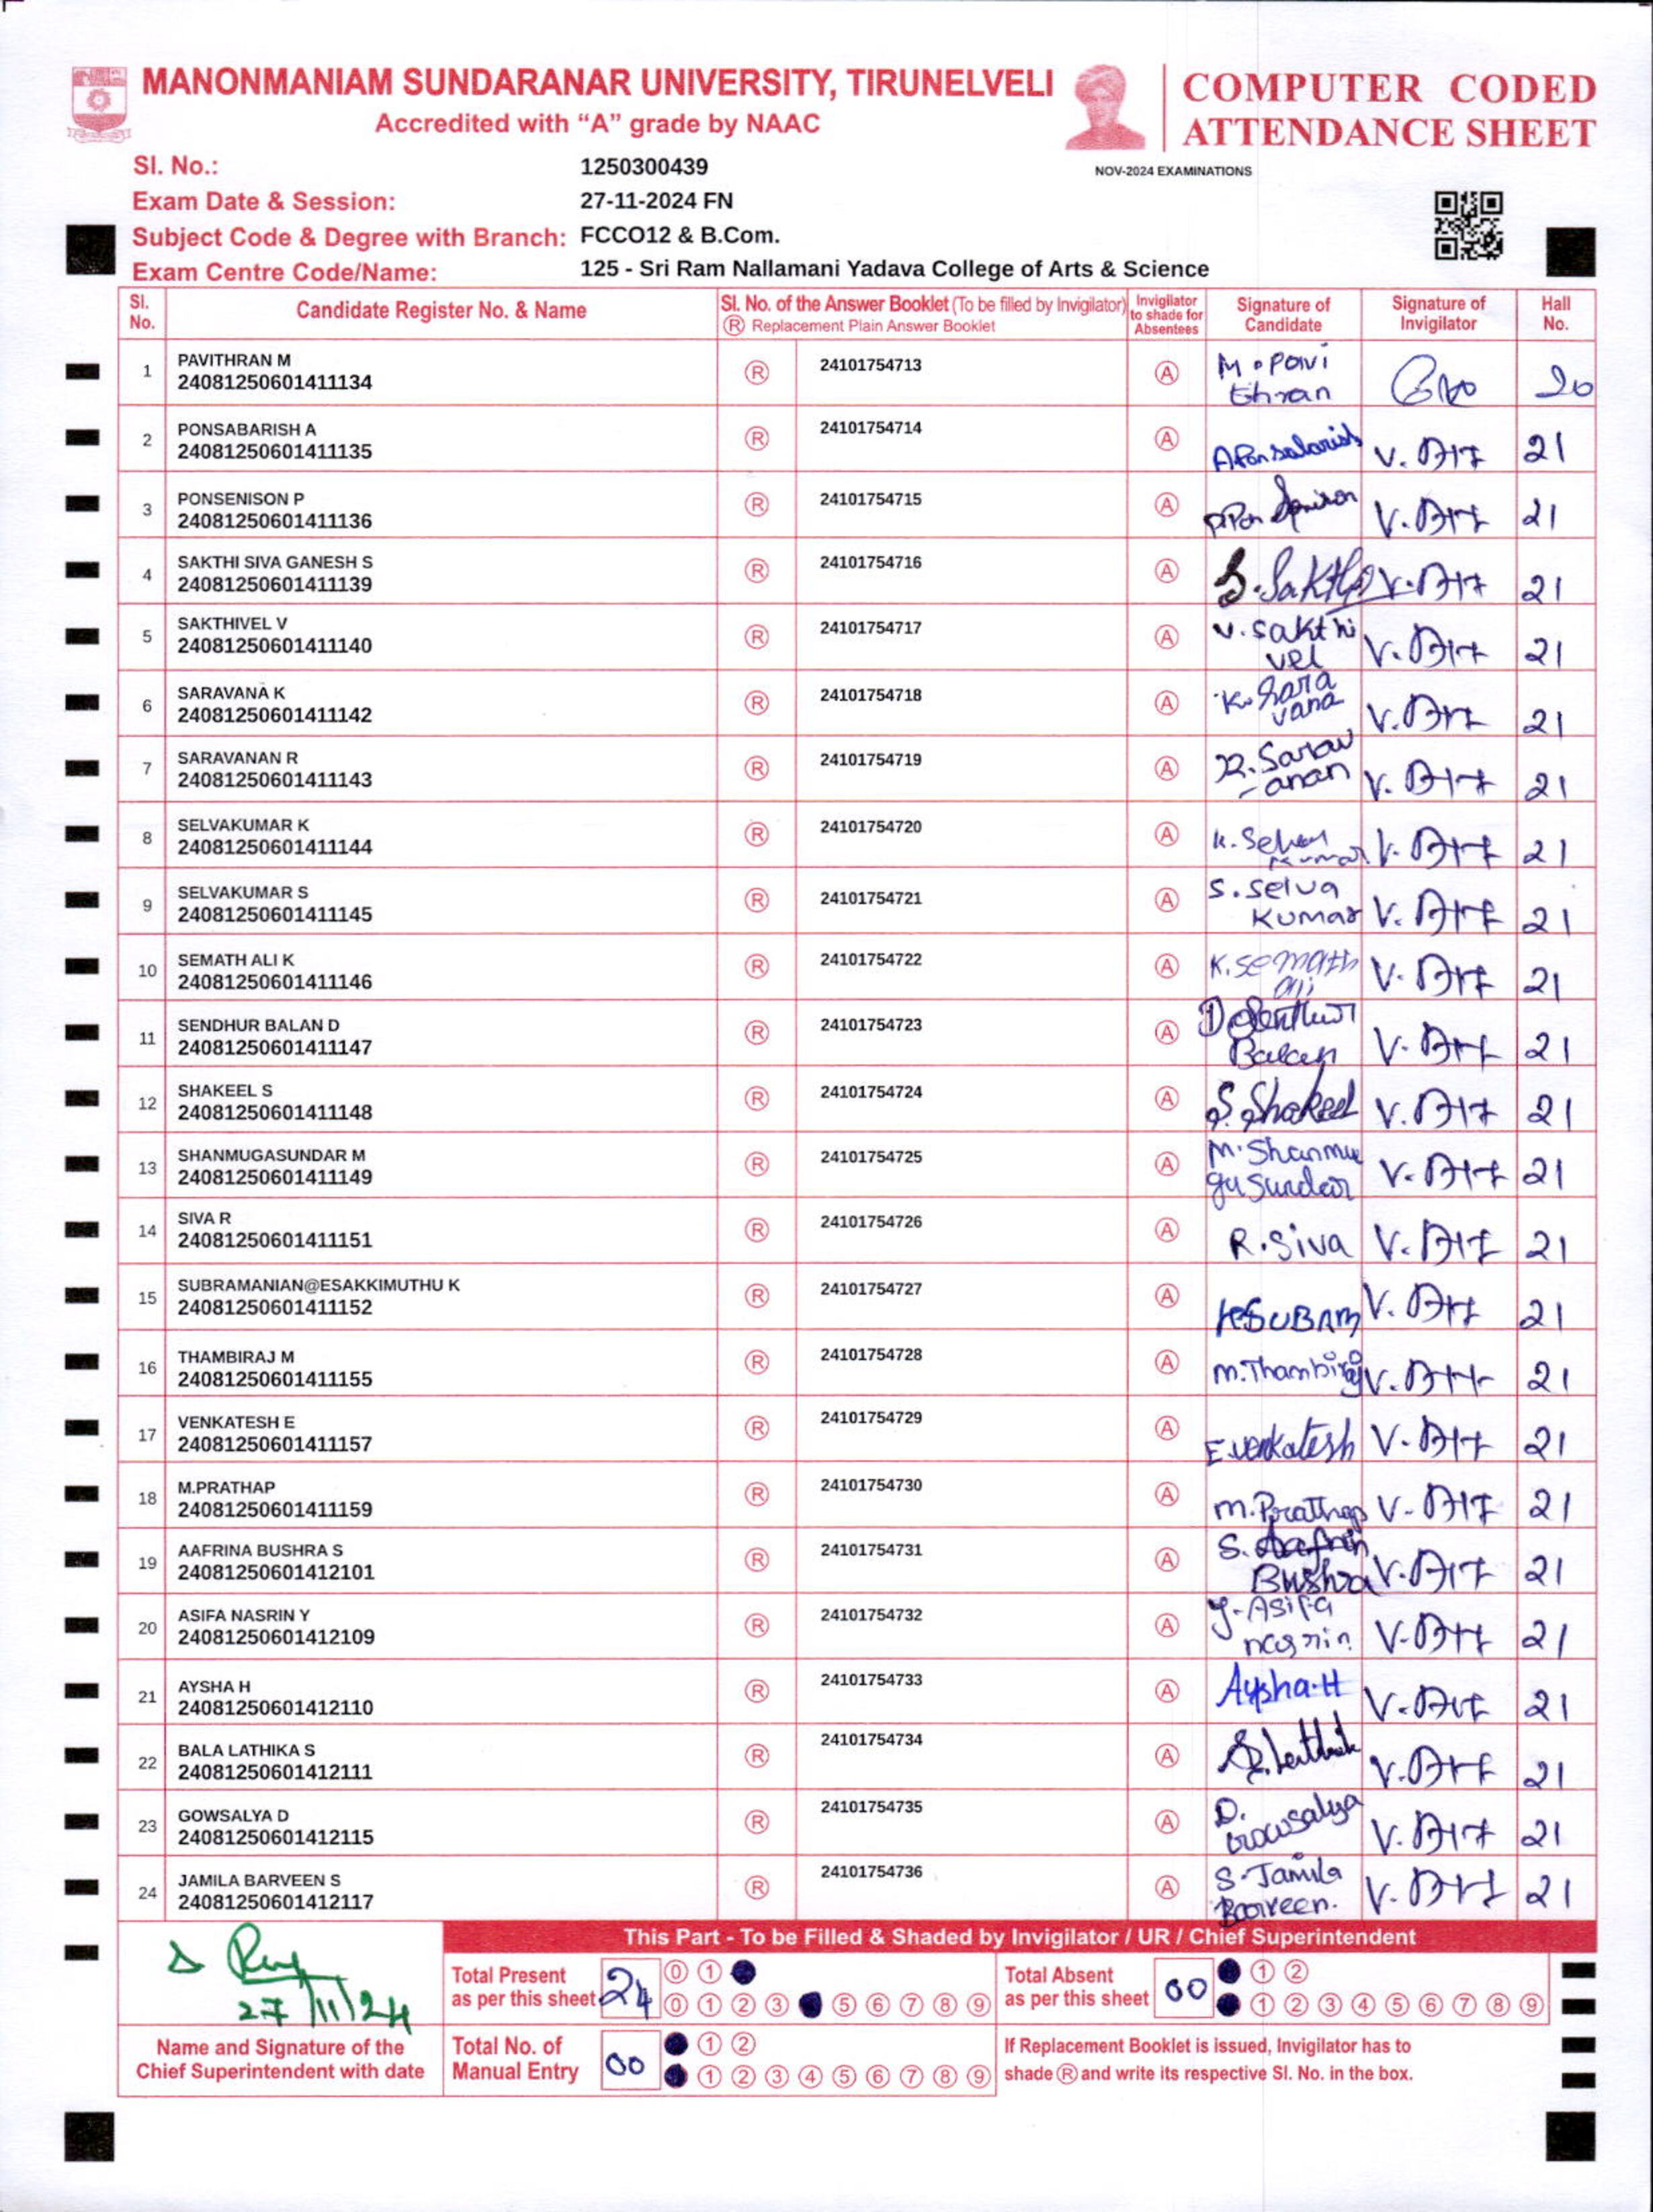 MANONMANIAM SUNDARANAR UNIVERSITY, TIRUNELVELI
Accredited with “A” grade by NAAC
COMPUTER CODED
ATTENDANCE SHEET
NOV-2024 EXAMINATIONS
Sl. No.: 1250300439
Exam Date & Session: 27-11-2024 FN
Subject Code & Degree with Branch: FCCO12 & B.Com.
Exam Centre Code/Name: 125 - Sri Ram Nallamani Yadava College of Arts & Science
Sl. No. Candidate Register No. & Name Sl. No. of the Answer Booklet (To be filled by Invigilator) Ⓡ Replacement Plain Answer Booklet Invigilator to shade for Absentees Signature of Candidate Signature of Invigilator Hall No.
1 PAVITHRAN M 24081250601411134 Ⓡ 24101754713 Ⓐ M.Pavithran 20
2 PONSABARISH A 24081250601411135 Ⓡ 24101754714 Ⓐ A.Ponsabarish 21
3 PONSENISON P 24081250601411136 Ⓡ 24101754715 Ⓐ 21
4 SAKTHI SIVA GANESH S 24081250601411139 Ⓡ 24101754716 Ⓐ S.Sakthi 21
5 SAKTHIVEL V 24081250601411140 Ⓡ 24101754717 Ⓐ V.Sakthi vel 21
6 SARAVANA K 24081250601411142 Ⓡ 24101754718 Ⓐ K.Sara vana 21
7 SARAVANAN R 24081250601411143 Ⓡ 24101754719 Ⓐ R.Sarav -anan 21
8 SELVAKUMAR K 24081250601411144 Ⓡ 24101754720 Ⓐ 21
9 SELVAKUMAR S 24081250601411145 Ⓡ 24101754721 Ⓐ S.Selva Kumar 21
10 SEMATH ALI K 24081250601411146 Ⓡ 24101754722 Ⓐ K.Semath Ali 21
11 SENDHUR BALAN D 24081250601411147 Ⓡ 24101754723 Ⓐ 21
12 SHAKEEL S 24081250601411148 Ⓡ 24101754724 Ⓐ S.Shakeel 21
13 SHANMUGASUNDAR M 24081250601411149 Ⓡ 24101754725 Ⓐ M.Shanmu gasundar 21
14 SIVA R 24081250601411151 Ⓡ 24101754726 Ⓐ R.Siva 21
15 SUBRAMANIAN@ESAKKIMUTHU K 24081250601411152 Ⓡ 24101754727 Ⓐ 21
16 THAMBIRAJ M 24081250601411155 Ⓡ 24101754728 Ⓐ M.Thambiraj 21
17 VENKATESH E 24081250601411157 Ⓡ 24101754729 Ⓐ E.Venkatesh 21
18 M.PRATHAP 24081250601411159 Ⓡ 24101754730 Ⓐ M.Prathap 21
19 AAFRINA BUSHRA S 24081250601412101 Ⓡ 24101754731 Ⓐ S. Bushra 21
20 ASIFA NASRIN Y 24081250601412109 Ⓡ 24101754732 Ⓐ Y.Asifa nasrin 21
21 AYSHA H 24081250601412110 Ⓡ 24101754733 Ⓐ Aysha.H 21
22 BALA LATHIKA S 24081250601412111 Ⓡ 24101754734 Ⓐ 21
23 GOWSALYA D 24081250601412115 Ⓡ 24101754735 Ⓐ D. Gowsalya 21
24 JAMILA BARVEEN S 24081250601412117 Ⓡ 24101754736 Ⓐ S.Jamila Barveen. 21
27/11/24
Name and Signature of the
Chief Superintendent with date
This Part - To be Filled & Shaded by Invigilator / UR / Chief Superintendent
Total Present as per this sheet 24
0 1
0 1 2 3 5 6 7 8 9
Total Absent as per this sheet 00
1 2
1 2 3 4 5 6 7 8 9
Total No. of Manual Entry 00
1 2
1 2 3 4 5 6 7 8 9
If Replacement Booklet is issued, Invigilator has to
shade Ⓡ and write its respective Sl. No. in the box.